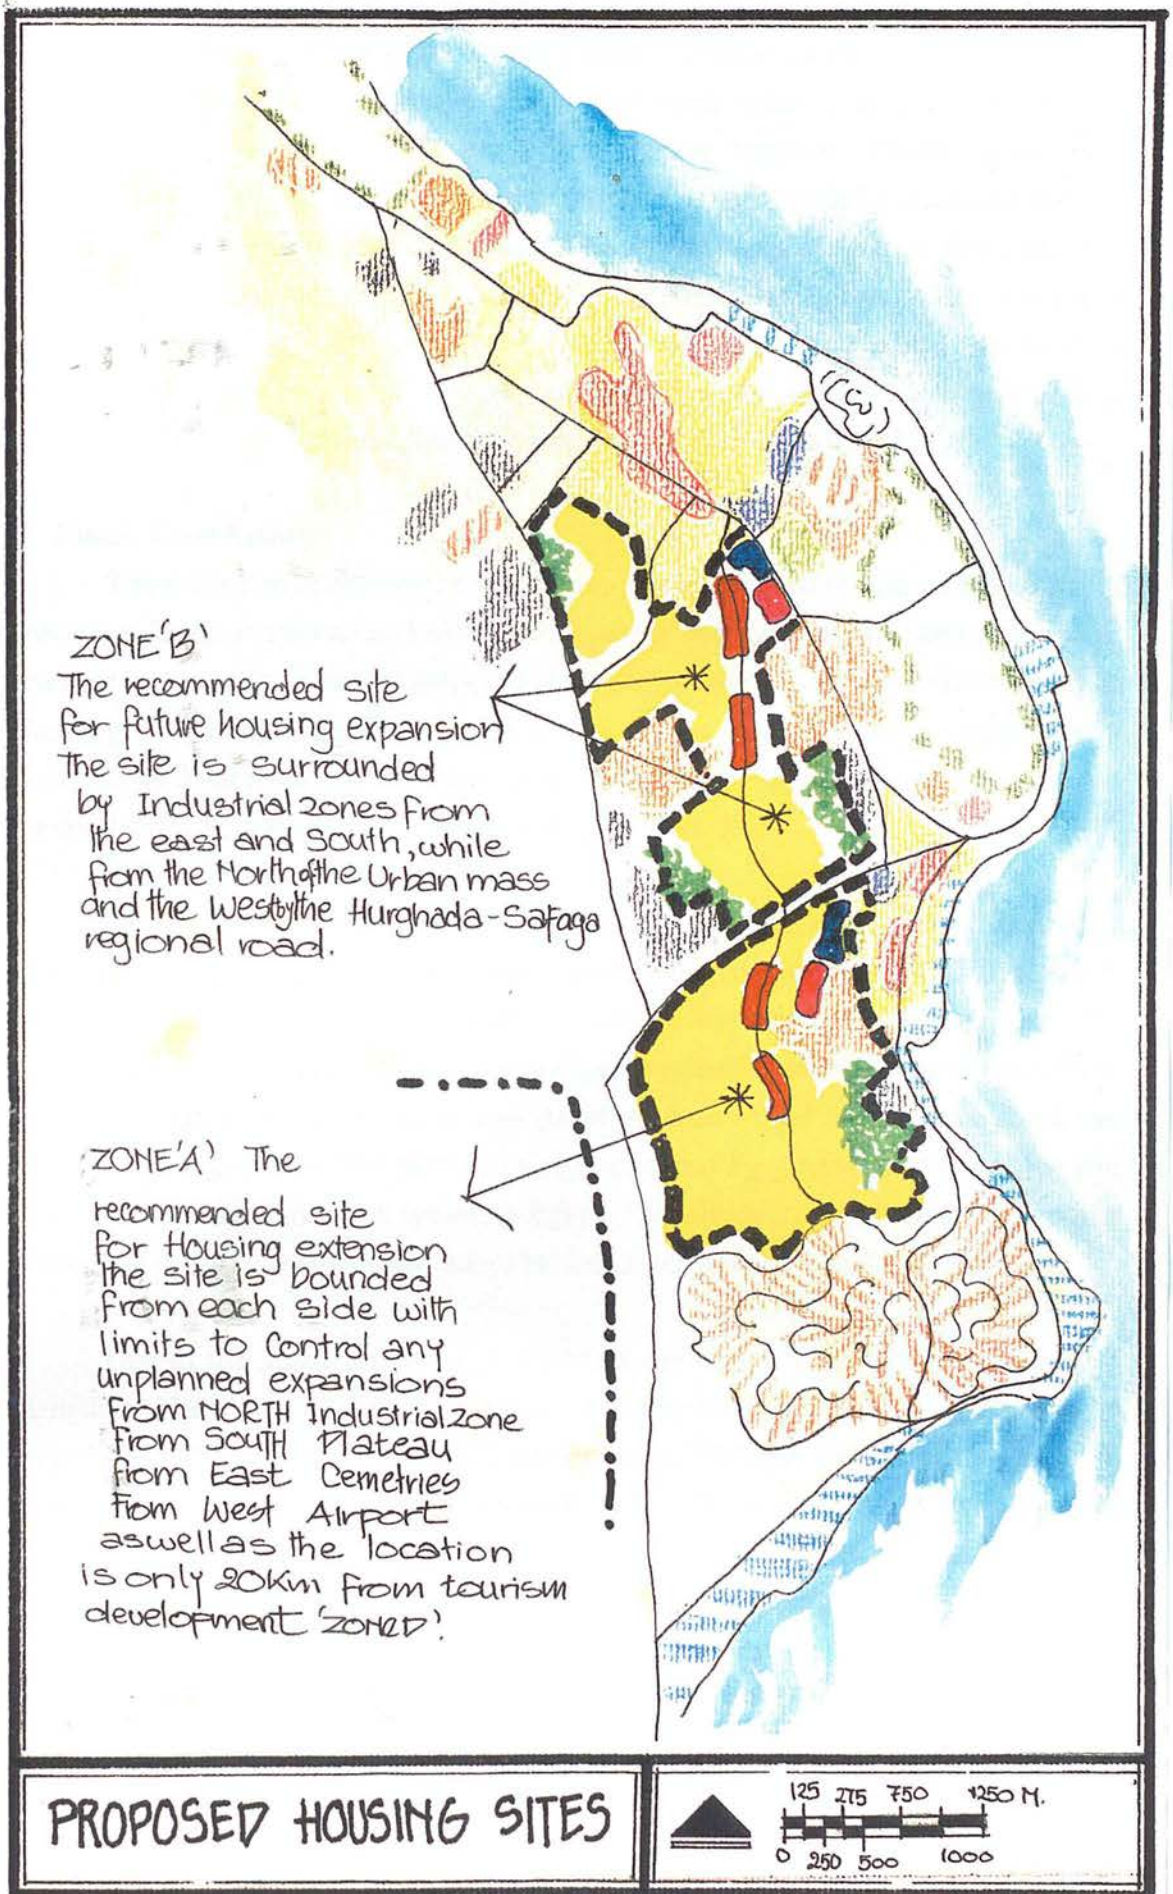 ZONE 'B'
The recommended site
for future housing expansion
the site is surrounded
by Industrial zones from
the east and South, while
from the North of the Urban mass
and the West by the Hurghada-Safaga
regional road.
ZONE 'A' The
recommended site
for Housing extension
the site is bounded
from each side with
limits to control any
unplanned expansions
from NORTH Industrial zone
from SOUTH Plateau
from East Cemetries
from West Airport
aswell as the location
is only 20Km from tourism
development 'ZONED'.
PROPOSED HOUSING SITES
125 275 750 1250 M.
0 250 500 1000